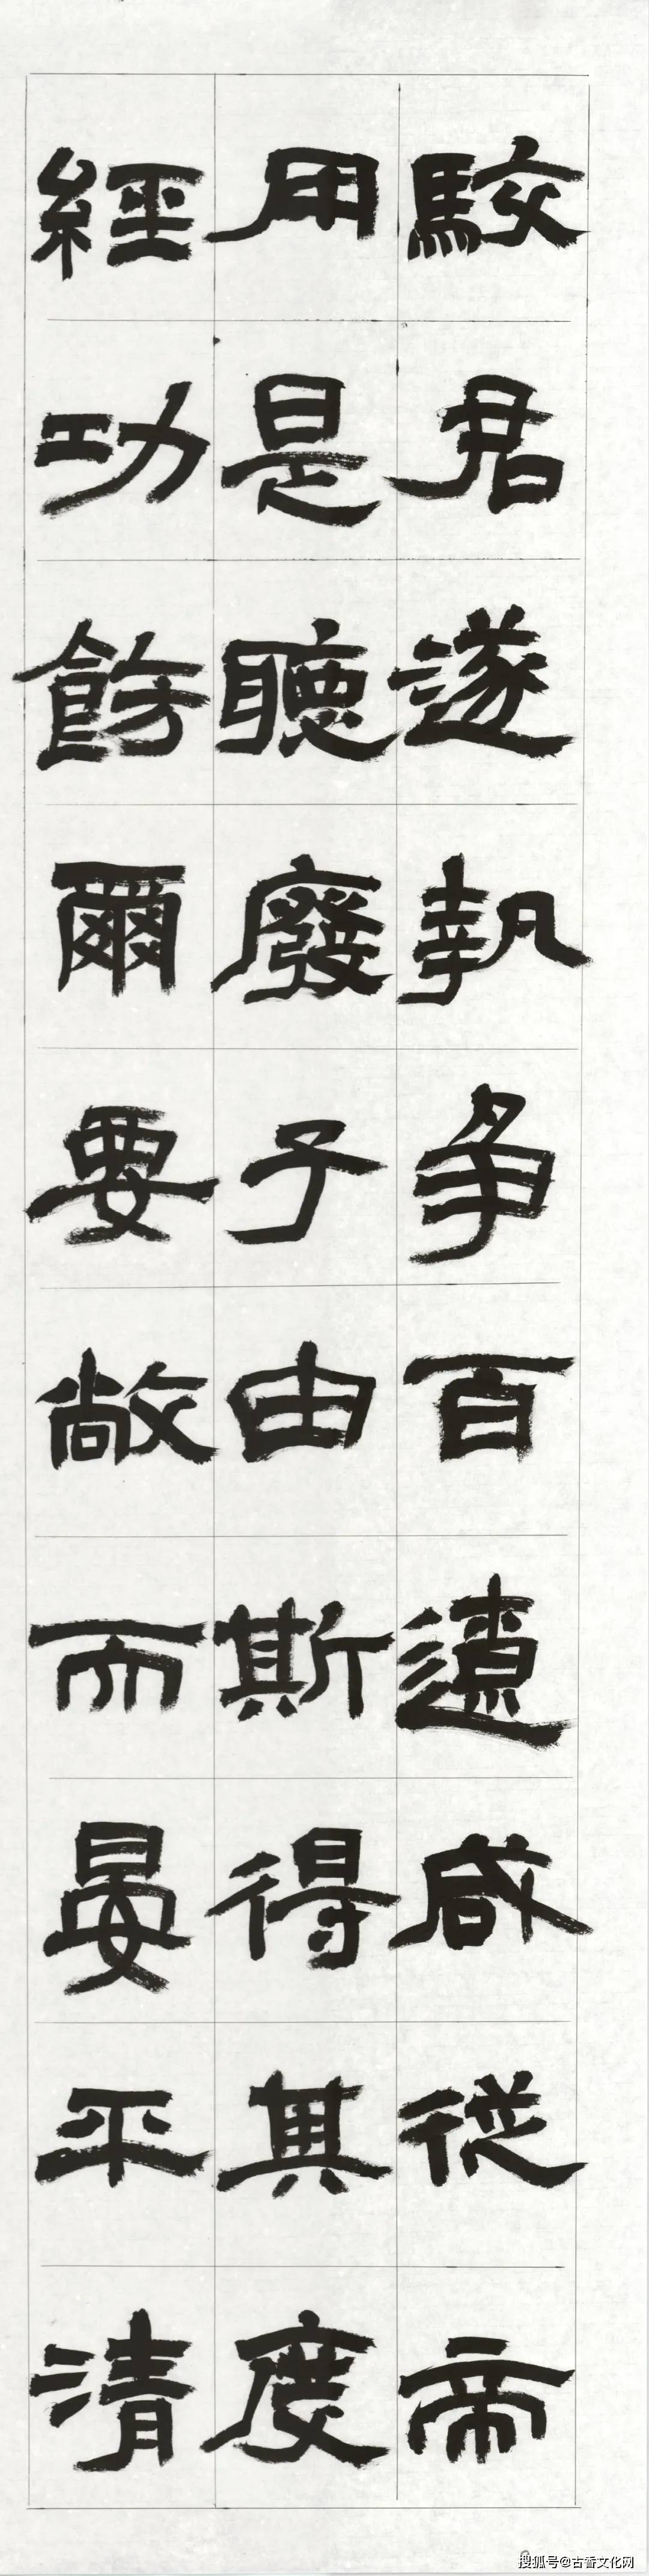 駮君遂執争百遼咸從帝
用是聽廢子由斯得其度
經功飭爾要敞而晏平清
搜狐号@古香文化网